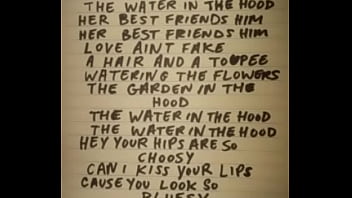 THE WATER IN THE HOOD
HER BEST FRIENDS HIM
HER BEST FRIENDS HIM
LOVE AINT FAKE
A HAIR AND A TOUPEE
WATERING THE FLOWERS
THE GARDEN IN THE
HOOD
THE WATER IN THE HOOD
THE WATER IN THE HOOD
HEY YOUR HIPS ARE SO
CHOOSY
CAN I KISS YOUR LIPS
CAUSE YOU LOOK SO
BLUESY